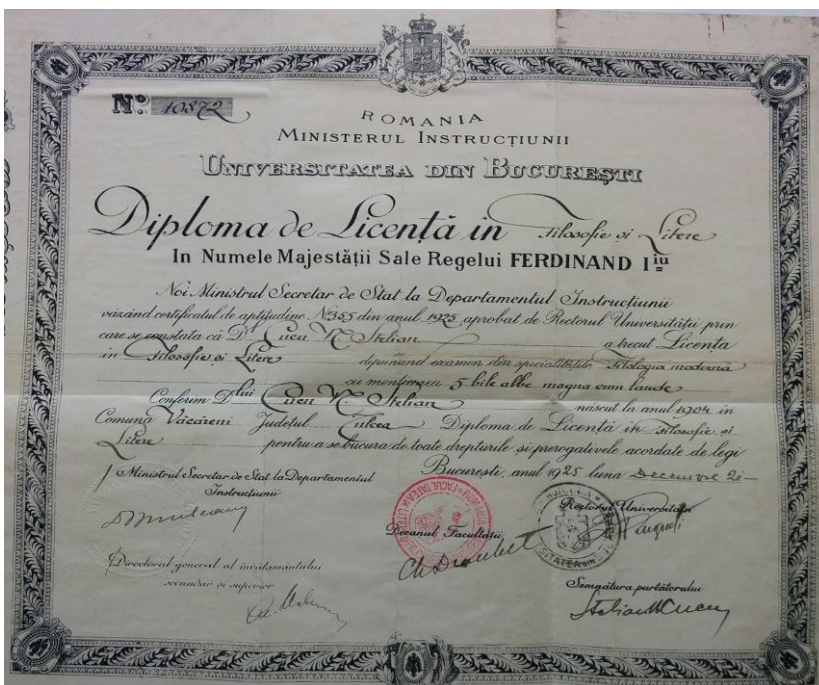 No. 10872
ROMANIA
MINISTERUL INSTRUCȚIUNII
UNIVERSITATEA DIN BUCUREȘTI
Diploma de Licență in Filosofie și Litere
In Numele Majestății Sale Regelui FERDINAND I iu
Noi Ministrul Secretar de Stat la Departamentul Instrucțiunii
văzând certificatul de aptitudine No 355 din anul 1925, aprobat de Rectorul Universității prin
care se constata că Dl Cucu N. Stelian a trecut Licența
in Filosofie și Litere depunând examen din specialitatea Filologia modernă
cu mențiunea 5 bile albe magna cum laude
Conferim Dlui Cucu N. Stelian născut la anul 1904 in
Comuna Văcăreni Județul Tulcea Diploma de Licență in Filosofie și
Litere pentru a se bucura de toate drepturile si prerogativele acordate de legi
București, anul 1925 luna Decemvre 21
Ministrul Secretar de Stat la Departamentul
Instrucțiunii
Rectorul Universității
Decanul Facultății
Directorul general al invatamântului
secundar și superior
Semnătura purtătorului